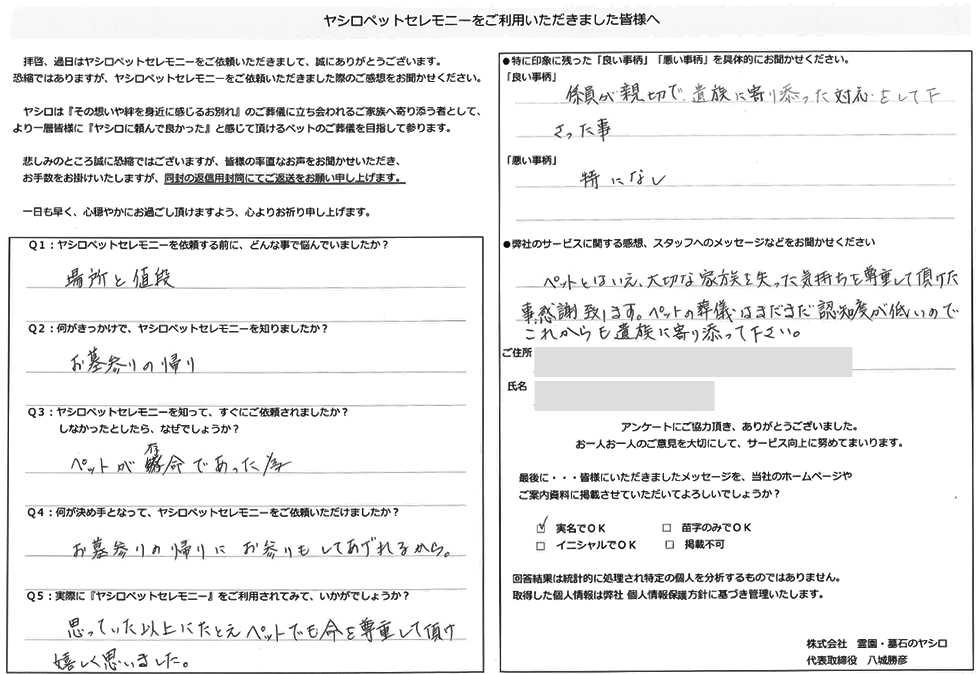 ヤシロペットセレモニーをご利用いただきました皆様へ
拝啓、過日はヤシロペットセレモニーをご依頼いただきまして、誠にありがとうございます。
恐縮ではありますが、ヤシロペットセレモニーをご依頼いただきました際のご感想をお聞かせください。
ヤシロは『その想いや絆を身近に感じるお別れ』のご葬儀に立ち会われるご家族へ寄り添う者として、
より一層皆様に『ヤシロに頼んで良かった』と感じて頂けるペットのご葬儀を目指して参ります。
悲しみのところ誠に恐縮ではございますが、皆様の率直なお声をお聞かせいただき、
お手数をお掛けいたしますが、同封の返信用封筒にてご返送をお願い申し上げます。
一日も早く、心穏やかにお過ごし頂けますよう、心よりお祈り申し上げます。
Q1：ヤシロペットセレモニーを依頼する前に、どんな事で悩んでいましたか？
場所と値段
Q2：何がきっかけで、ヤシロペットセレモニーを知りましたか？
お墓参りの帰り
Q3：ヤシロペットセレモニーを知って、すぐにご依頼されましたか？
しなかったとしたら、なぜでしょうか？
ペットが存命であった為
Q4：何が決め手となって、ヤシロペットセレモニーをご依頼いただけましたか？
お墓参りの帰りに お参りもしてあげれるから。
Q5：実際に『ヤシロペットセレモニー』をご利用されてみて、いかがでしょうか？
思っていた以上にたとえペットでも命を尊重して頂け
嬉しく思いました。
●特に印象に残った「良い事柄」「悪い事柄」を具体的にお聞かせください。
「良い事柄」
係員が親切で、遺族に寄り添った対応をして下
さった事
「悪い事柄」
特になし
●弊社のサービスに関する感想、スタッフへのメッセージなどをお聞かせください
ペットとはいえ、大切な家族を失った気持ちを尊重して頂けた
事感謝致します。ペットの葬儀はまだまだ認知度が低いので
これからも遺族に寄り添って下さい。
ご住所
氏名
アンケートにご協力頂き、ありがとうございました。
お一人お一人のご意見を大切にして、サービス向上に努めてまいります。
最後に・・・皆様にいただきましたメッセージを、当社のホームページや
ご案内資料に掲載させていただいてよろしいでしょうか？
☑ 実名でＯＫ □ 苗字のみでＯＫ
□ イニシャルでＯＫ □ 掲載不可
回答結果は統計的に処理され特定の個人を分析するものではありません。
取得した個人情報は弊社 個人情報保護方針に基づき管理いたします。
株式会社 霊園・墓石のヤシロ
代表取締役 八城勝彦